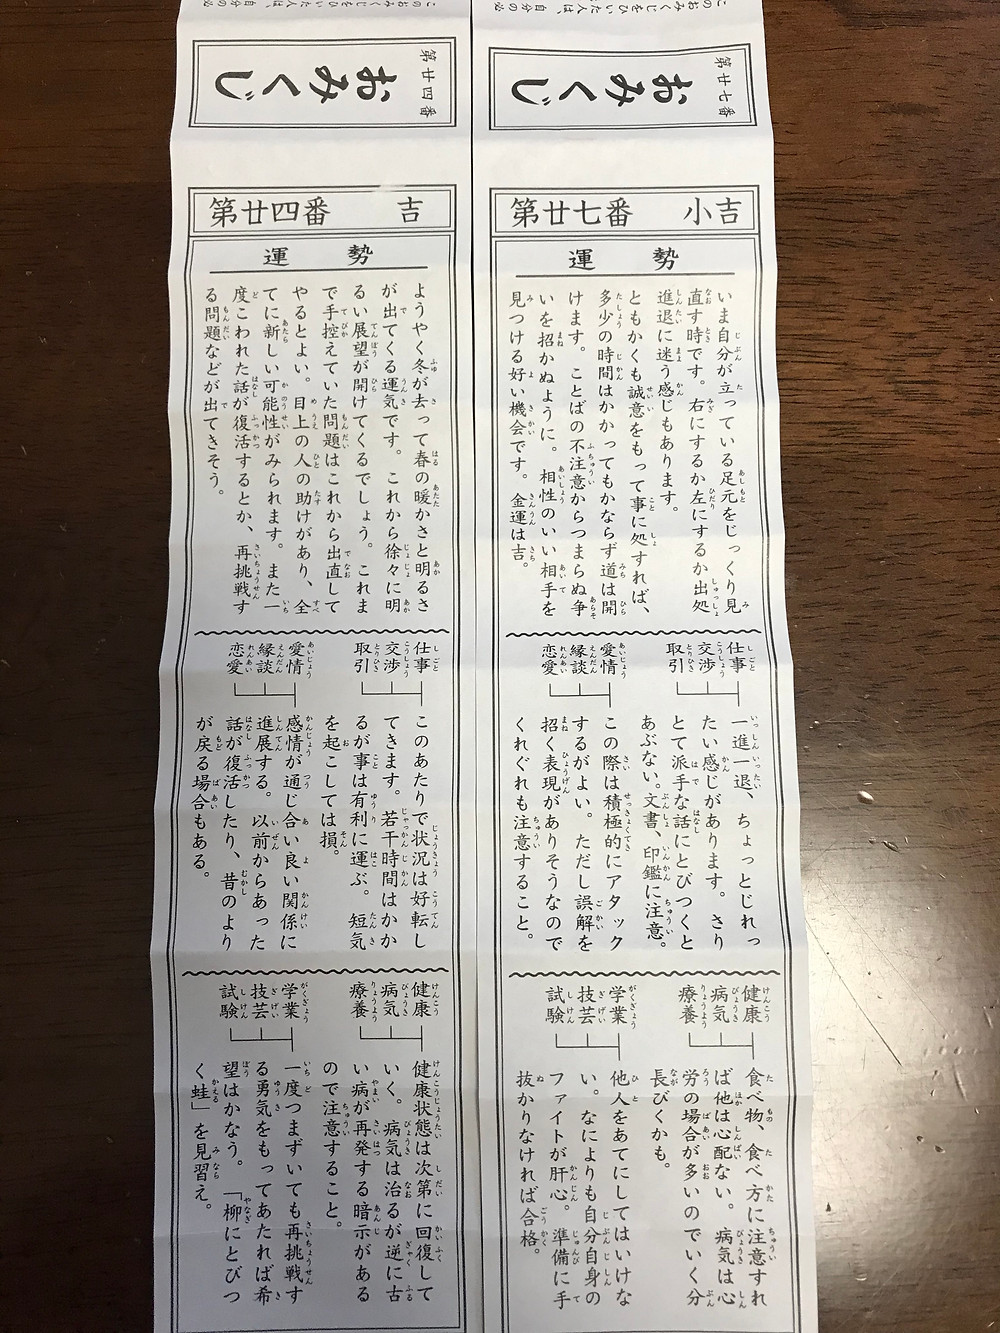 このおみくじをひいた人は、自分の必
第廿七番
おみくじ
第廿七番 小吉
運勢
いま自分が立っている足元をじっくり見
直す時です。右にするか左にするか出処
進退に迷う感じもあります。
ともかくも誠意をもって事に処すれば、
多少の時間はかかってもかならず道は開
けます。ことばの不注意からつまらぬ争
いを招かぬように。相性のいい相手を
見つける好い機会です。金運は吉。
仕事
交渉
取引
一進一退、ちょっとじれっ
たい感じがあります。さり
とて派手な話にとびつくと
あぶない。文書、印鑑に注意。
愛情
縁談
恋愛
この際は積極的にアタック
するがよい。ただし誤解を
招く表現がありそうなので
くれぐれも注意すること。
健康
病気
療養
食べ物、食べ方に注意すれ
ば他は心配ない。病気は心
労の場合が多いのでいく分
長びくかも。
学業
技芸
試験
他人をあてにしてはいけな
い。なによりも自分自身の
ファイトが肝心。準備に手
抜かりなければ合格。
このおみくじをひいた人は、自分の必
第廿四番
おみくじ
第廿四番 吉
運勢
ようやく冬が去って春の暖かさと明るさ
が出てくる運気です。これから徐々に明
るい展望が開けてくるでしょう。これま
で手控えていた問題はこれから出直して
やるとよい。目上の人の助けがあり、全
てに新しい可能性がみられます。また一
度こわれた話が復活するとか、再挑戦す
る問題などが出てきそう。
仕事
交渉
取引
このあたりで状況は好転し
てきます。若干時間はかか
るが事は有利に運ぶ。短気
を起こしては損。
愛情
縁談
恋愛
感情が通じ合い良い関係に
進展する。以前からあった
話が復活したり、昔のより
が戻る場合もある。
健康
病気
療養
健康状態は次第に回復して
いく。病気は治るが逆に古
い病が再発する暗示がある
ので注意すること。
学業
技芸
試験
一度つまずいても再挑戦す
る勇気をもってあたれば希
望はかなう。「柳にとびつ
く蛙」を見習え。